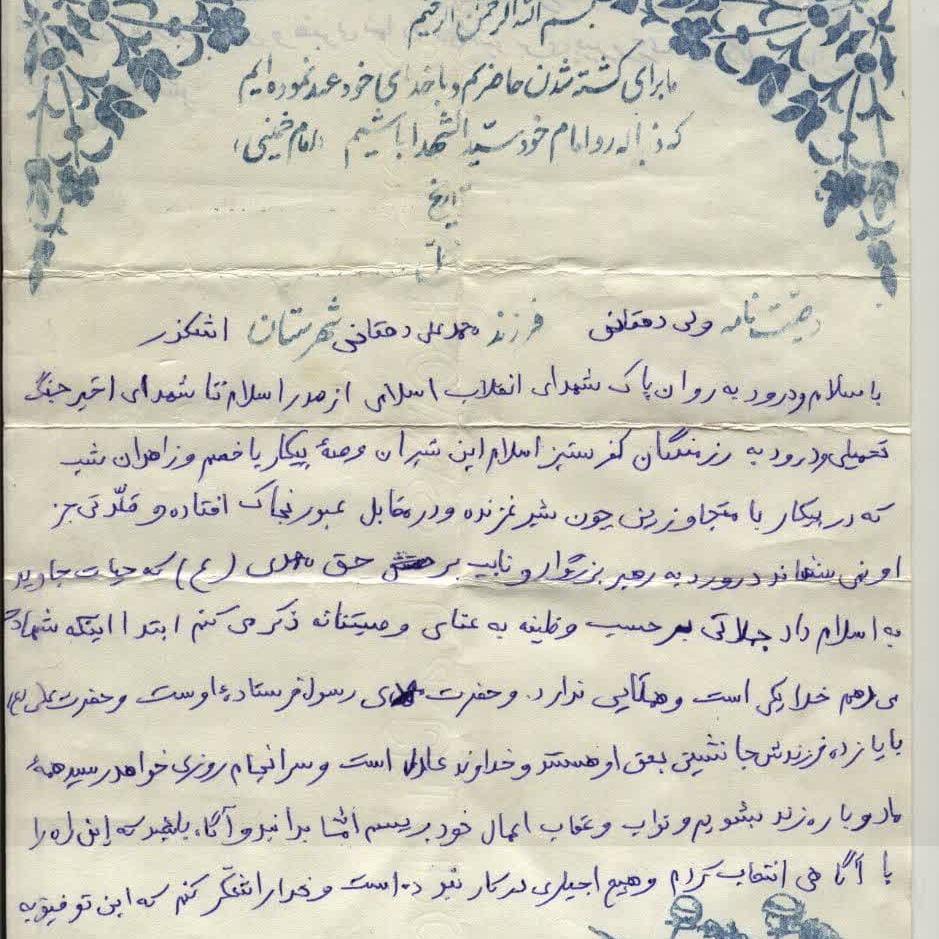 بسم الله الرحمن الرحیم
ما برای کشته شدن حاضریم و با خدای خود عهد نموده ایم
که دنباله رو امام خود سید الشهدا باشیم (امام خمینی)
تاریخ
وصیت نامه ولی دهقانی فرزند محمد علی دهقانی شهرستان اشکذر
با سلام و درود به روان پاک شهدای انقلاب اسلامی از صدر اسلام تا شهدای اخیر جنگ
تحمیلی و درود به رزمندگان کفر ستیز اسلام این شیران عرصهٔ پیکار با خصم و زاهدان شب
که در پیکار با متجاوزین چون شیر غرنده و در مقابل بخاک افتاده و جز
او نمی شناسند درورد به رهبر بزرگوار و نایب بر حق مهدی (ع) که حیات جاوید
به اسلام داد جملاتی بر حسب وظیفه به عنوان وصیتنامه ذکر می کنم ابتدا اینکه شهادت
می دهم خدا یکی است و همتایی ندارد و حضرت رسول فرستادهٔ اوست و حضرت علی (ع)
با یازده فرزندش جانشینی بحق او هستند و خداوند عادل است و سرانجام روزی خواهد رسید همهٔ
ما دوباره زنده میشویم و ثواب و عقاب اعمال خود برسیم بدانید و آگاه باشید که این راه را
با آگاهی انتخاب کردم و هیچ اجباری در کار نبوده است و خدا را تشکر کنم که این توفیق به